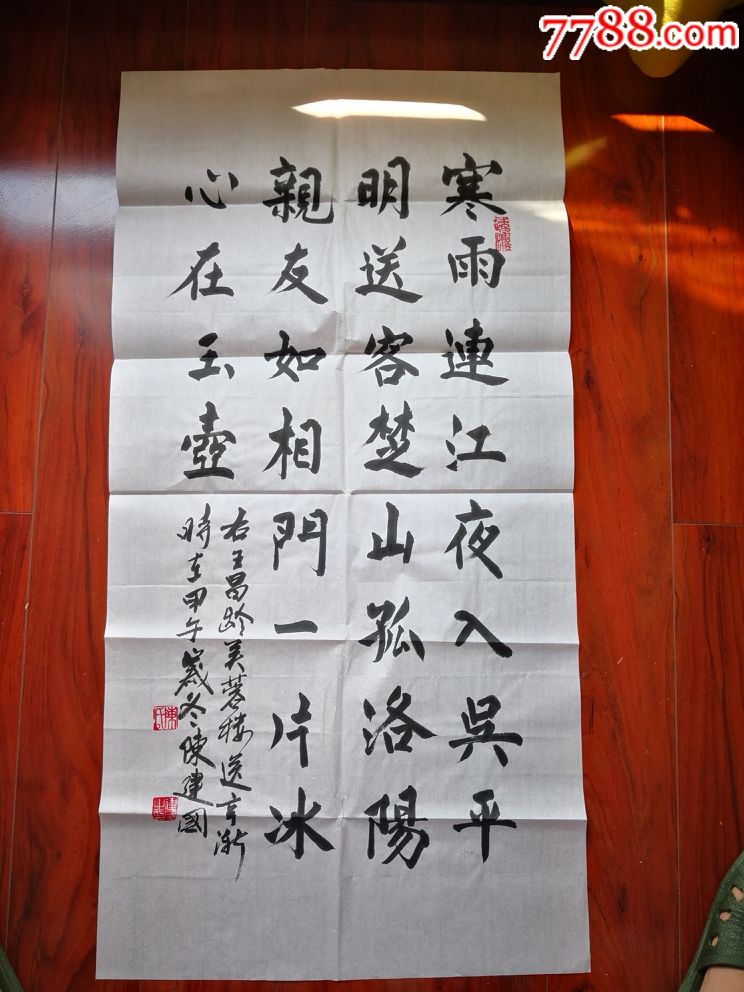 7788.com
寒雨連江夜入吳平
明送客楚山孤洛陽
親友如相門一片冰
心在玉壺
右王昌龄芙蓉楼送辛渐
時在甲午歲冬陳建國